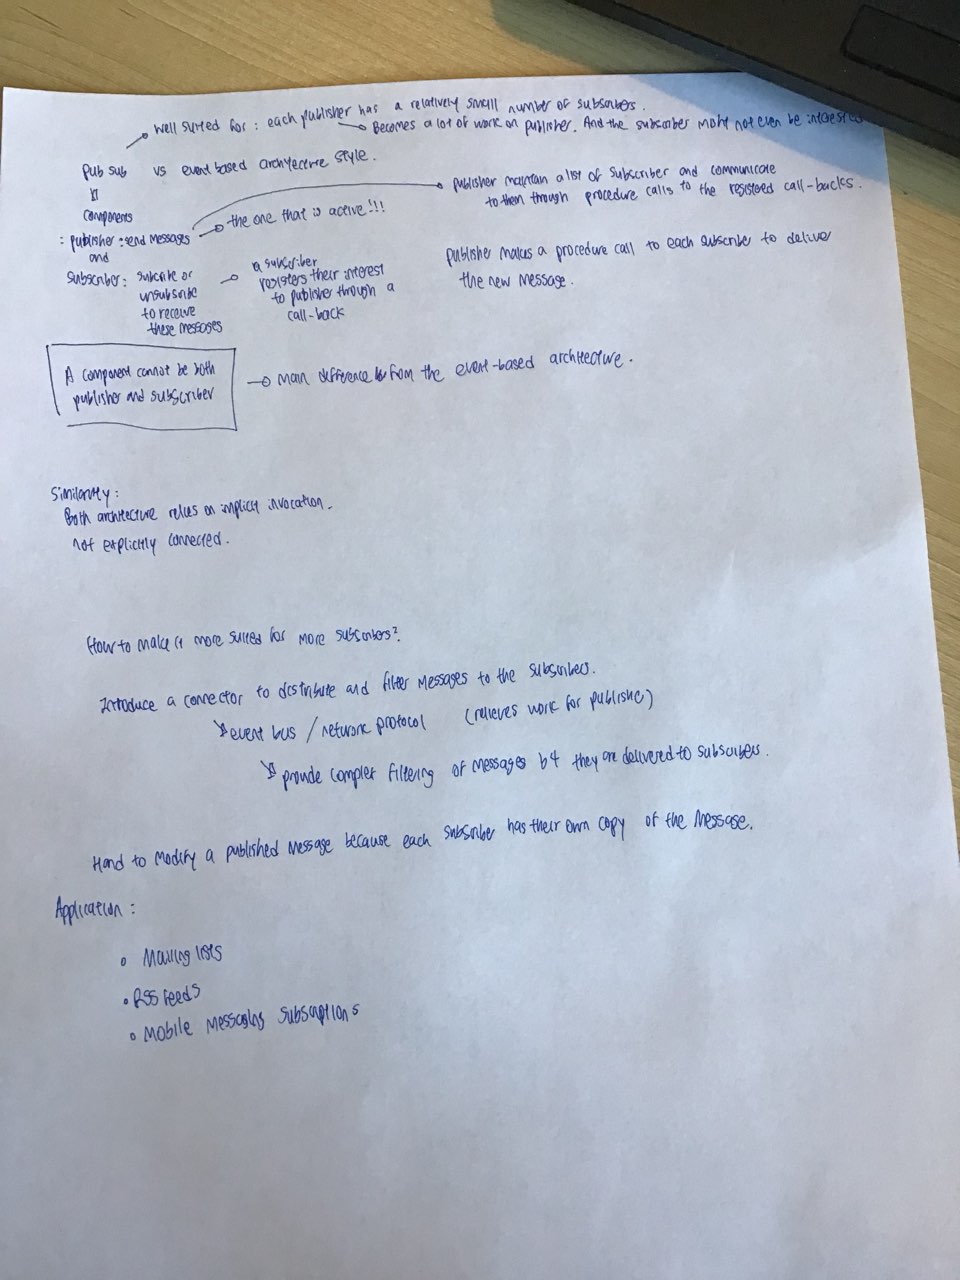 well suited for : each publisher has a relatively small number of subscribers.
Becomes a lot of work on publisher. And the subscriber might not even be interested
Pub sub vs event based architecture style.
Components
: publisher : send messages
and
subscriber : subscribe or
unsubscribe
to receive
these messages
the one that is active!!!
publisher maintain a list of subscriber and communicate
to them through procedure calls to the registered call-backs.
a subscriber
registers their interest
to publisher through a
call-back
publisher makes a procedure call to each subscriber to deliver
the new message.
A component cannot be both
publisher and subscriber
main difference from the event-based architecture.
Similarity :
Both architecture relies on implicit invocation.
not explicitly connected.
How to make it more suited for more subscribers?
Introduce a connector to distribute and filter messages to the subscribers.
event bus / network protocol (relieves work for publisher)
provide complex filtering of messages b4 they are delivered to subscribers.
Hard to modify a published message because each subscriber has their own copy of the message.
Application :
• Mailing lists
• RSS feeds
• Mobile messaging subscriptions